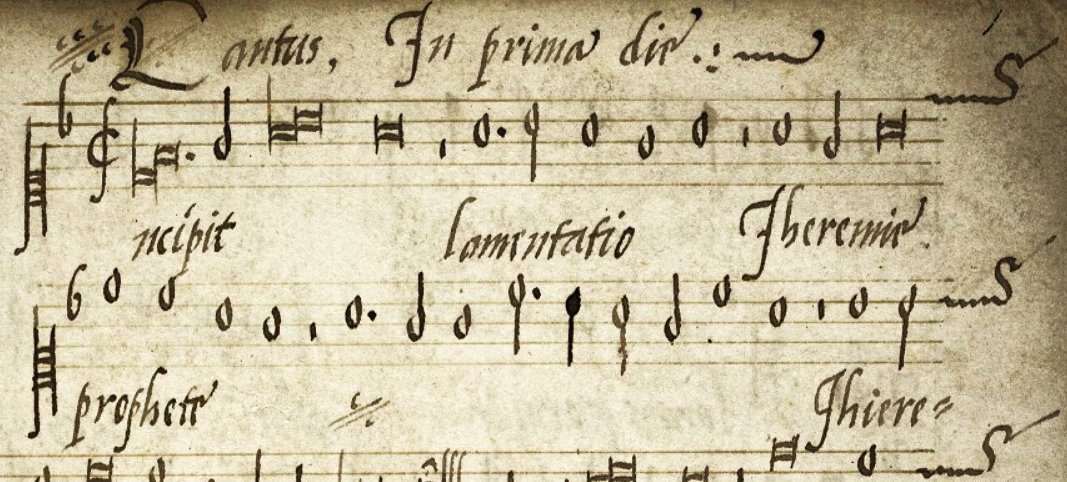 Cantus, In prima die
ncipit lamentatio Jheremie
prophete Jhiere=